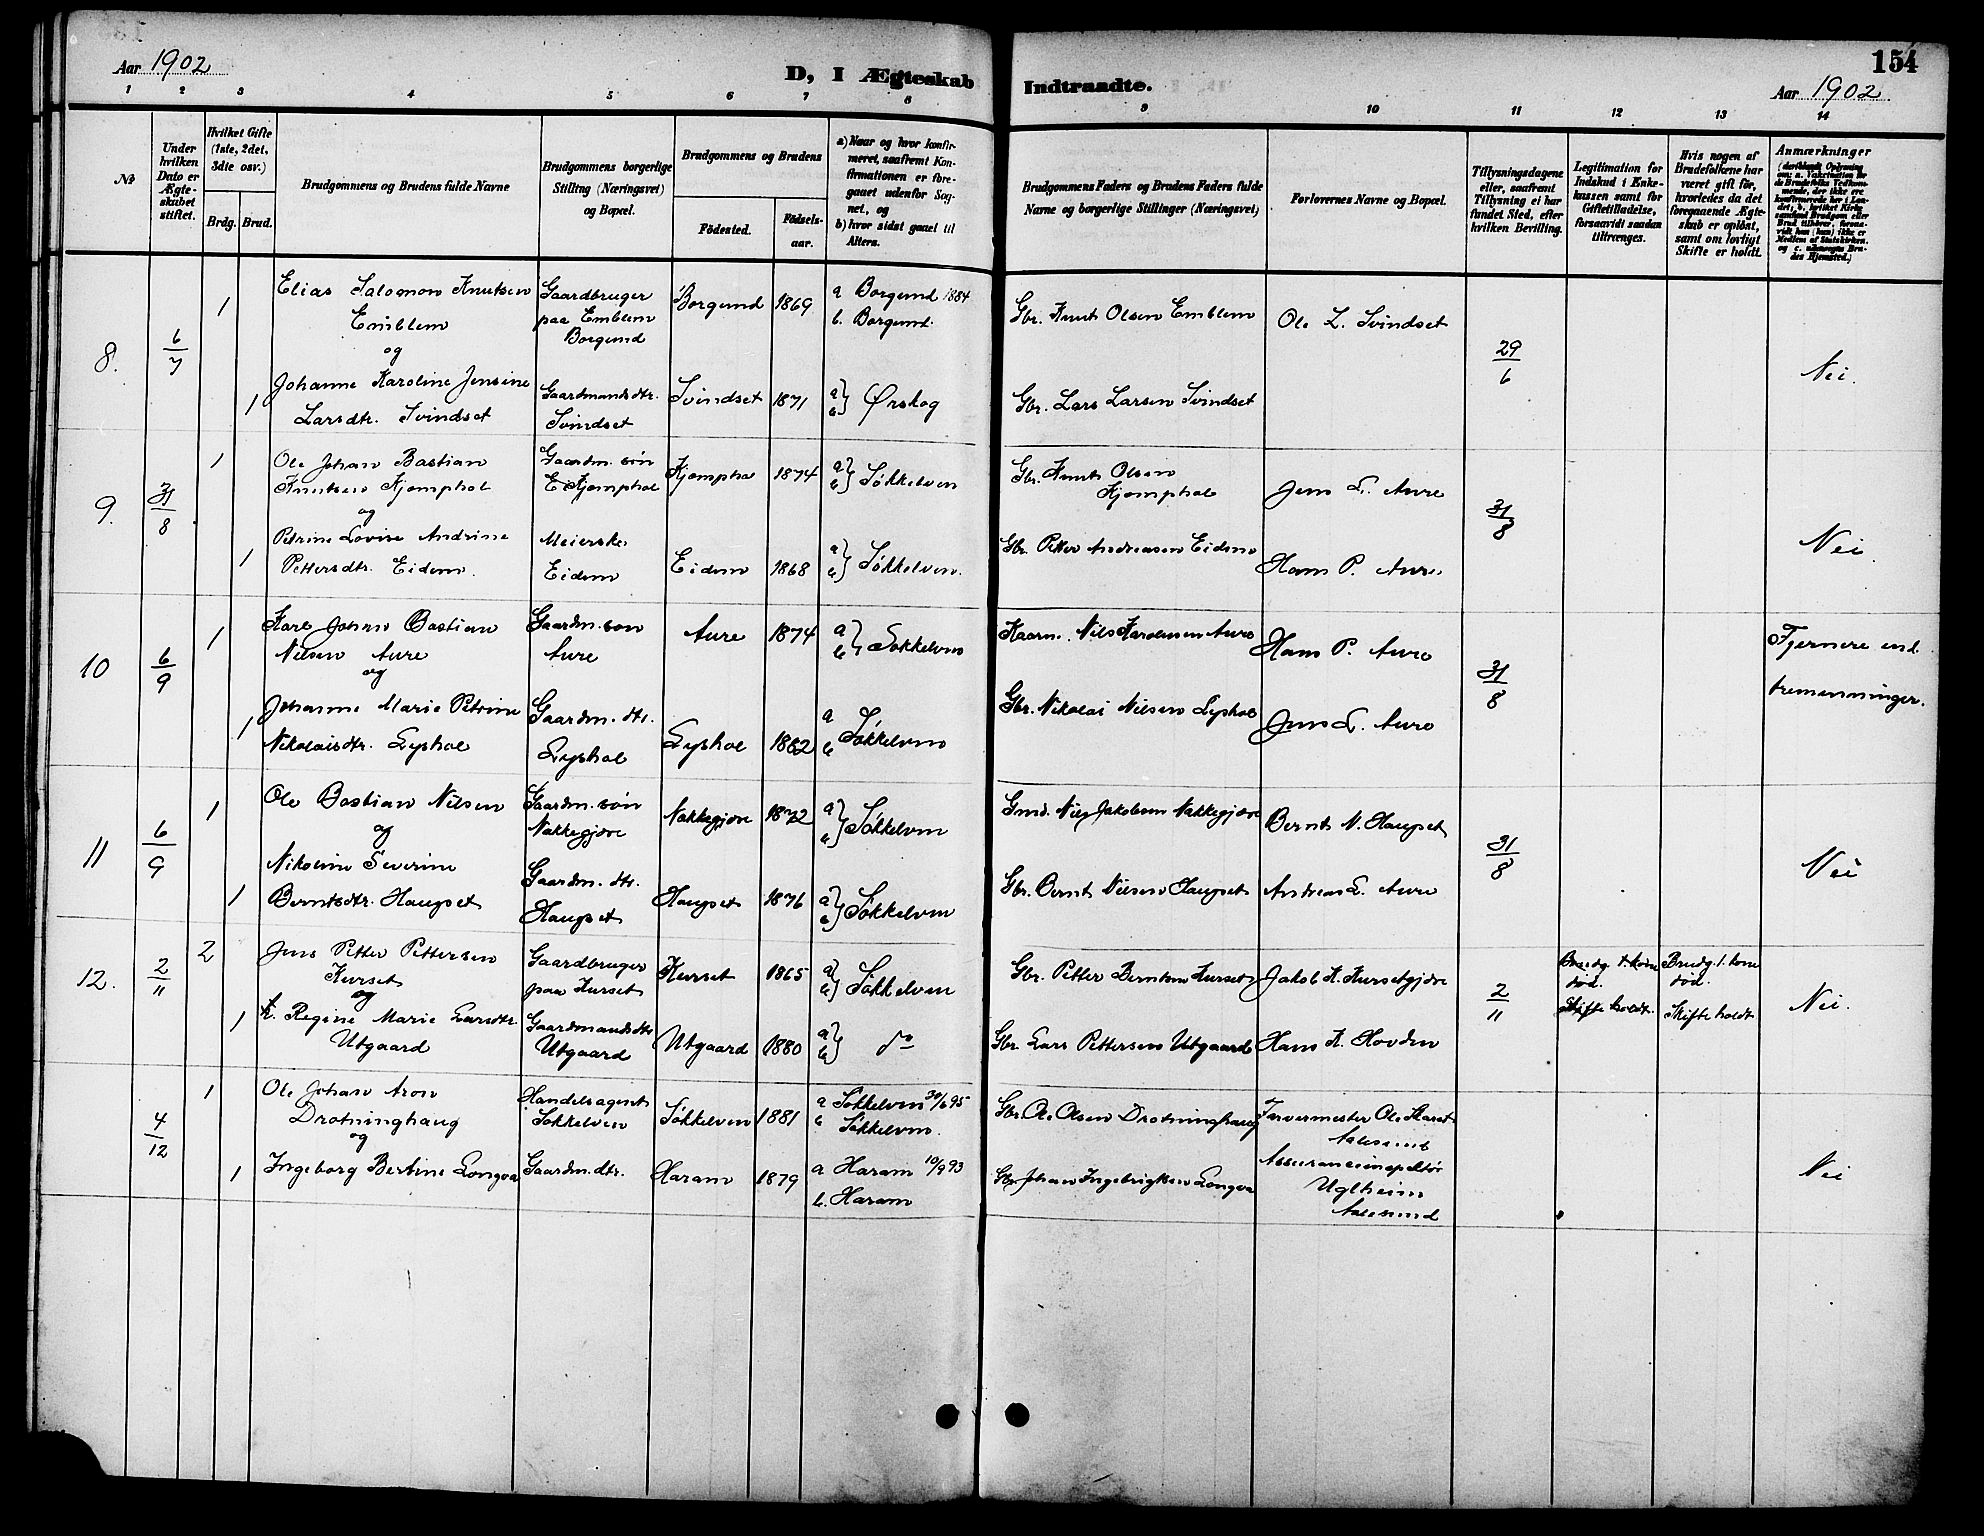 Aar 1902
D, I Ægteskab
Indtraadte.
154
Aar 1902
1 2 3 4 5 6 7 8 9 10 11 12 13 14
№
Under hvilken Dato er Ægteskabet stiftet.
Hvilket Gifte (1ste, 2det, 3die osv.)
Brdg. Brud.
Brudgommens og Brudens fulde Navne
Brudgommens borgerlige Stilling (Næringsvei) og Bopæl.
Brudgommens og Brudens
Födested. Födsels-aar.
a) Naar og hvor konfirmeret, saafremt Konfirmationen er foregaaet udenfor Sognet, og
b) hvor sidst gaaet til Alters.
Brudgommens Faders og Brudens Faders fulde Navne og borgerlige Stillinger (Næringsvei)
Forlovernes Navne og Bopæl.
Tillysningsdagene eller, saafremt Tillysning ei har fundet Sted, efter hvilken Bevilling.
Legitimation for Indskud i Enkekassen samt for Giftetilladelse, forsaavidt saadan tiltrænges.
Hvis nogen af Brudefolkene har været gift før, hvorledes da det foregaaende Ægteskab er opløst, samt om lovligt Skifte er holdt.
Anmærkninger
8. 6/7 1 Elias Salomon Knutsen Gaardbruger Borgund 1869 a Borgund 1884 Gbr. Knut Olsen Emblem Ole L. Svindset 29/6 Nei.
Emblem paa Emblem b. Borgund.
og Borgund
1 Johanne Karoline Jensine Gaardmandsdtr. Svindset 1871 a b} Ørskog Gbr. Lars Larsen Svindset
Larsdtr. Svindset Svindset
9. 31/8 1 Ole Johan Bastian Gaardm. søn Kjemphol 1874 a b} Søkkelven Gbr. Knut Olsen Jens L. Aure 31/8 Nei
Knutsen Kjemphol Kjemphol Kjemphol
og
1 Petrine Lovise Andrine Meierske Eidem 1868 a b} Søkkelven. Gbr. Petter Andreasen Eidem Hans P. Aure
Pettersdtr. Eidem. Eidem
10 6/9 1 Karl Johan Bastian Gaardm. søn Aure 1874 a b} Søkkelven Nils Karolusen Aure Hans P. Aure 31/8 Fjernere end
Nilsen Aure Aure tremenninger.
og
1 Johanne Marie Petrine Gaardm. dtr. Lyshol 1882 a b Søkkelven Gbr. Nikolai Nilsen Lyshol Jens L. Aure
Nikolaisdtr. Lyshol Lyshol
11 6/9 1 Ole Bastian Nilsen Gaardm. søn Nakkegjøre 1872 a b} Søkkelven Nils Jakobsen Nakkegjøre Bernt N. Haugset 31/8 Nei
og Nakkegjøre
Nikoline Severine Gaardm. dtr.
1 Berntsdtr. Haugset Haugset Haugset 1876 a b} Søkkelven Gbr. Bernt Nilsen Haugset Andreas L. Aure
12. 2/11 2 Jens Petter Pettersen Gaardbruger Kurset 1865 a b} Søkkelven Gbr. Petter Berntsen Kurset Jakob K. Kursetgjøre 2/11 Brudg. 1. kone død. Brudg. 1. kone død. Nei.
Kurset paa Kurset Skifte holdt. Skifte holdt
og
1 Regine Marie Larsdtr. Gaardmandsdtr Utgaard 1880 a b} do Gbr. Lars Pettersen Utgaard Hans K. Hovden
Utgaard Utgaard
4/12 1 Ole Johan Aron Handelsagent Søkkelven 1881 a Søkkelven 30/6 95 Gbr. Ole Olsen Drotninghaug Farvermester Ole
Drotninghaug Søkkelven b Søkkelven. Aalesund
og
1 Ingeborg Bertine Longva Gaardm. dtr. Haram 1879 a Haram 10/9 93 Gbr. Johan Ingebrigtsen Longva Assuranceinspektør Nei
b. Haram Uglheim
Aalesund